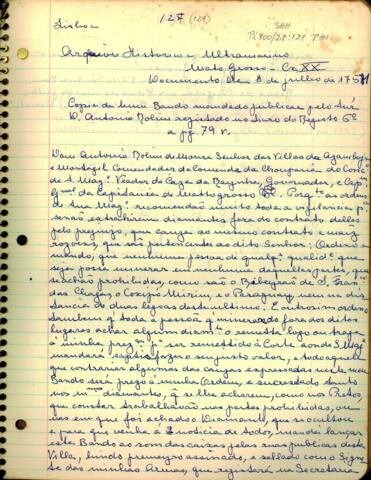 127 (129)
Lisboa
SBH
Pi 400/27:129 P41
Arquivo Historico Ultramarino
Mato Grosso - Cx XX
Documento de 8 de julho de 1751
Copia de hum Bando mandado publicar pelo Snr
D. Antonio Rolim registado no Livro do Registo 6º
a pg. 79 v.
Dom Antonio Rolim de Moura Senhor das Villas de Azambuja
e Montargil Comendador da Comenda da
de S. Magᵉ Veador da Caza da Raynha, Governador, e Capᵐ
Gⁿᵃˡ da Capitania de Matto grosso
de Sua Magᵉ recomendão muito toda a vigilencia pª
serão extrahirem diamantes fora do contrato delles
pelo prejuizo, que cauza ao mesmo contrato e mais
rezoens, que são patentes ao dito Senhor; Ordeno e
mando, que nenhuma pessoa de qualqʳ qualidᵉ que
seja possa minerar em nenhuma daquellas partes, que
se achão prohibidas, como são o Ribeyrão de S. Fran
das Chagas, o Coxipó Mirim, e o Paraguay, nem na dis
tancia de duas legoas deste ultimo. E outrosim ordeno
tambem qᵉ toda a pessoa qᵉ minerando fora dos ditos
lugares achar algum diamᵗᵉ o remetta logo ou traga
á minha prezᶜª pª ser remettido á Corte aonde S. Magᵉ
mandará satisfazer o seu justo valor, e todo aquelle
que contrariar alguma das cauzas expressadas neste meu
Bando será prezo a minha Ordem, e sucessado tanto
nos diamantes, qᵉ se lhe acharem, como nos Pretos,
que constar trabalhavão nas partes prohibidas, ou
em que foi achado o Diamante, que se occultou
e para que venha á noticia de todos, mandei lançar
este Bando ao som das caixas pelas ruas publicas desta
Villa, hindo primeyro assinado, e sellado com o Signe
te das minhas Armas, que registará na Secretaria